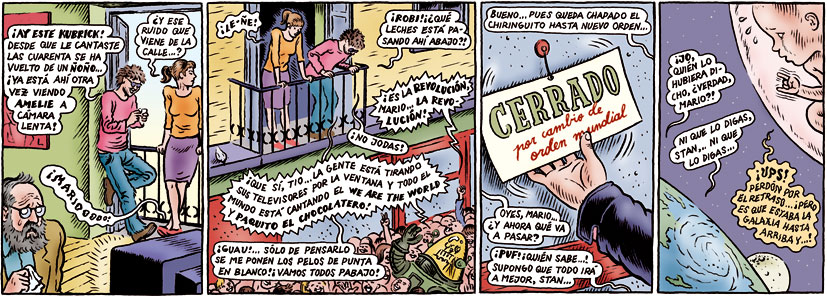 ¡AY ESTE KUBRICK!
DESDE QUE LE CANTASTE
LAS CUARENTA SE HA
VUELTO DE UN ÑOÑO...
¡YA ESTÁ AHÍ OTRA
VEZ VIENDO
AMELIE A
CÁMARA
LENTA!
¿Y ESE
RUIDO QUE
VIENE DE LA
CALLE...?
¡MARIOOOOO!
¡LE-ÑE!
¡ROBI! ¿¡QUÉ
LECHES ESTÁ PA-
SANDO AHÍ ABAJO??
¡ES LA REVOLUCIÓN,
MARIO... LA REVO-
LUCIÓN!
¡NO JODAS!
¡QUE SÍ, TIO... LA GENTE ESTÁ TIRANDO
SUS TELEVISORES POR LA VENTANA Y TODO EL
MUNDO ESTÁ CANTANDO EL WE ARE THE WORLD
Y PAQUITO EL CHOCOLATERO!
¡GUAU!... SÓLO DE PENSARLO
SE ME PONEN LOS PELOS DE PUNTA
EN BLANCO! ¡VAMOS TODOS PABAJO!
BUENO... PUES QUEDA CHAPADO EL
CHIRINGUITO HASTA NUEVO ORDEN...
CERRADO
por cambio de
orden mundial
OYES, MARIO...
¿Y AHORA QUÉ VA
A PASAR?
¡PUF! ¡QUIÉN SABE...!
SUPONGO QUE TODO IRÁ
A MEJOR, STAN...
¡JO,
QUIÉN LO
HUBIERA DI-
CHO, ¿VERDAD,
MARIO??
NI QUE LO DIGAS,
STAN... NI QUE
LO DIGAS...
¡UPS!
PERDÓN POR
EL RETRASO... ¡PERO
ES QUE ESTABA LA
GALAXIA HASTA
ARRIBA Y...!